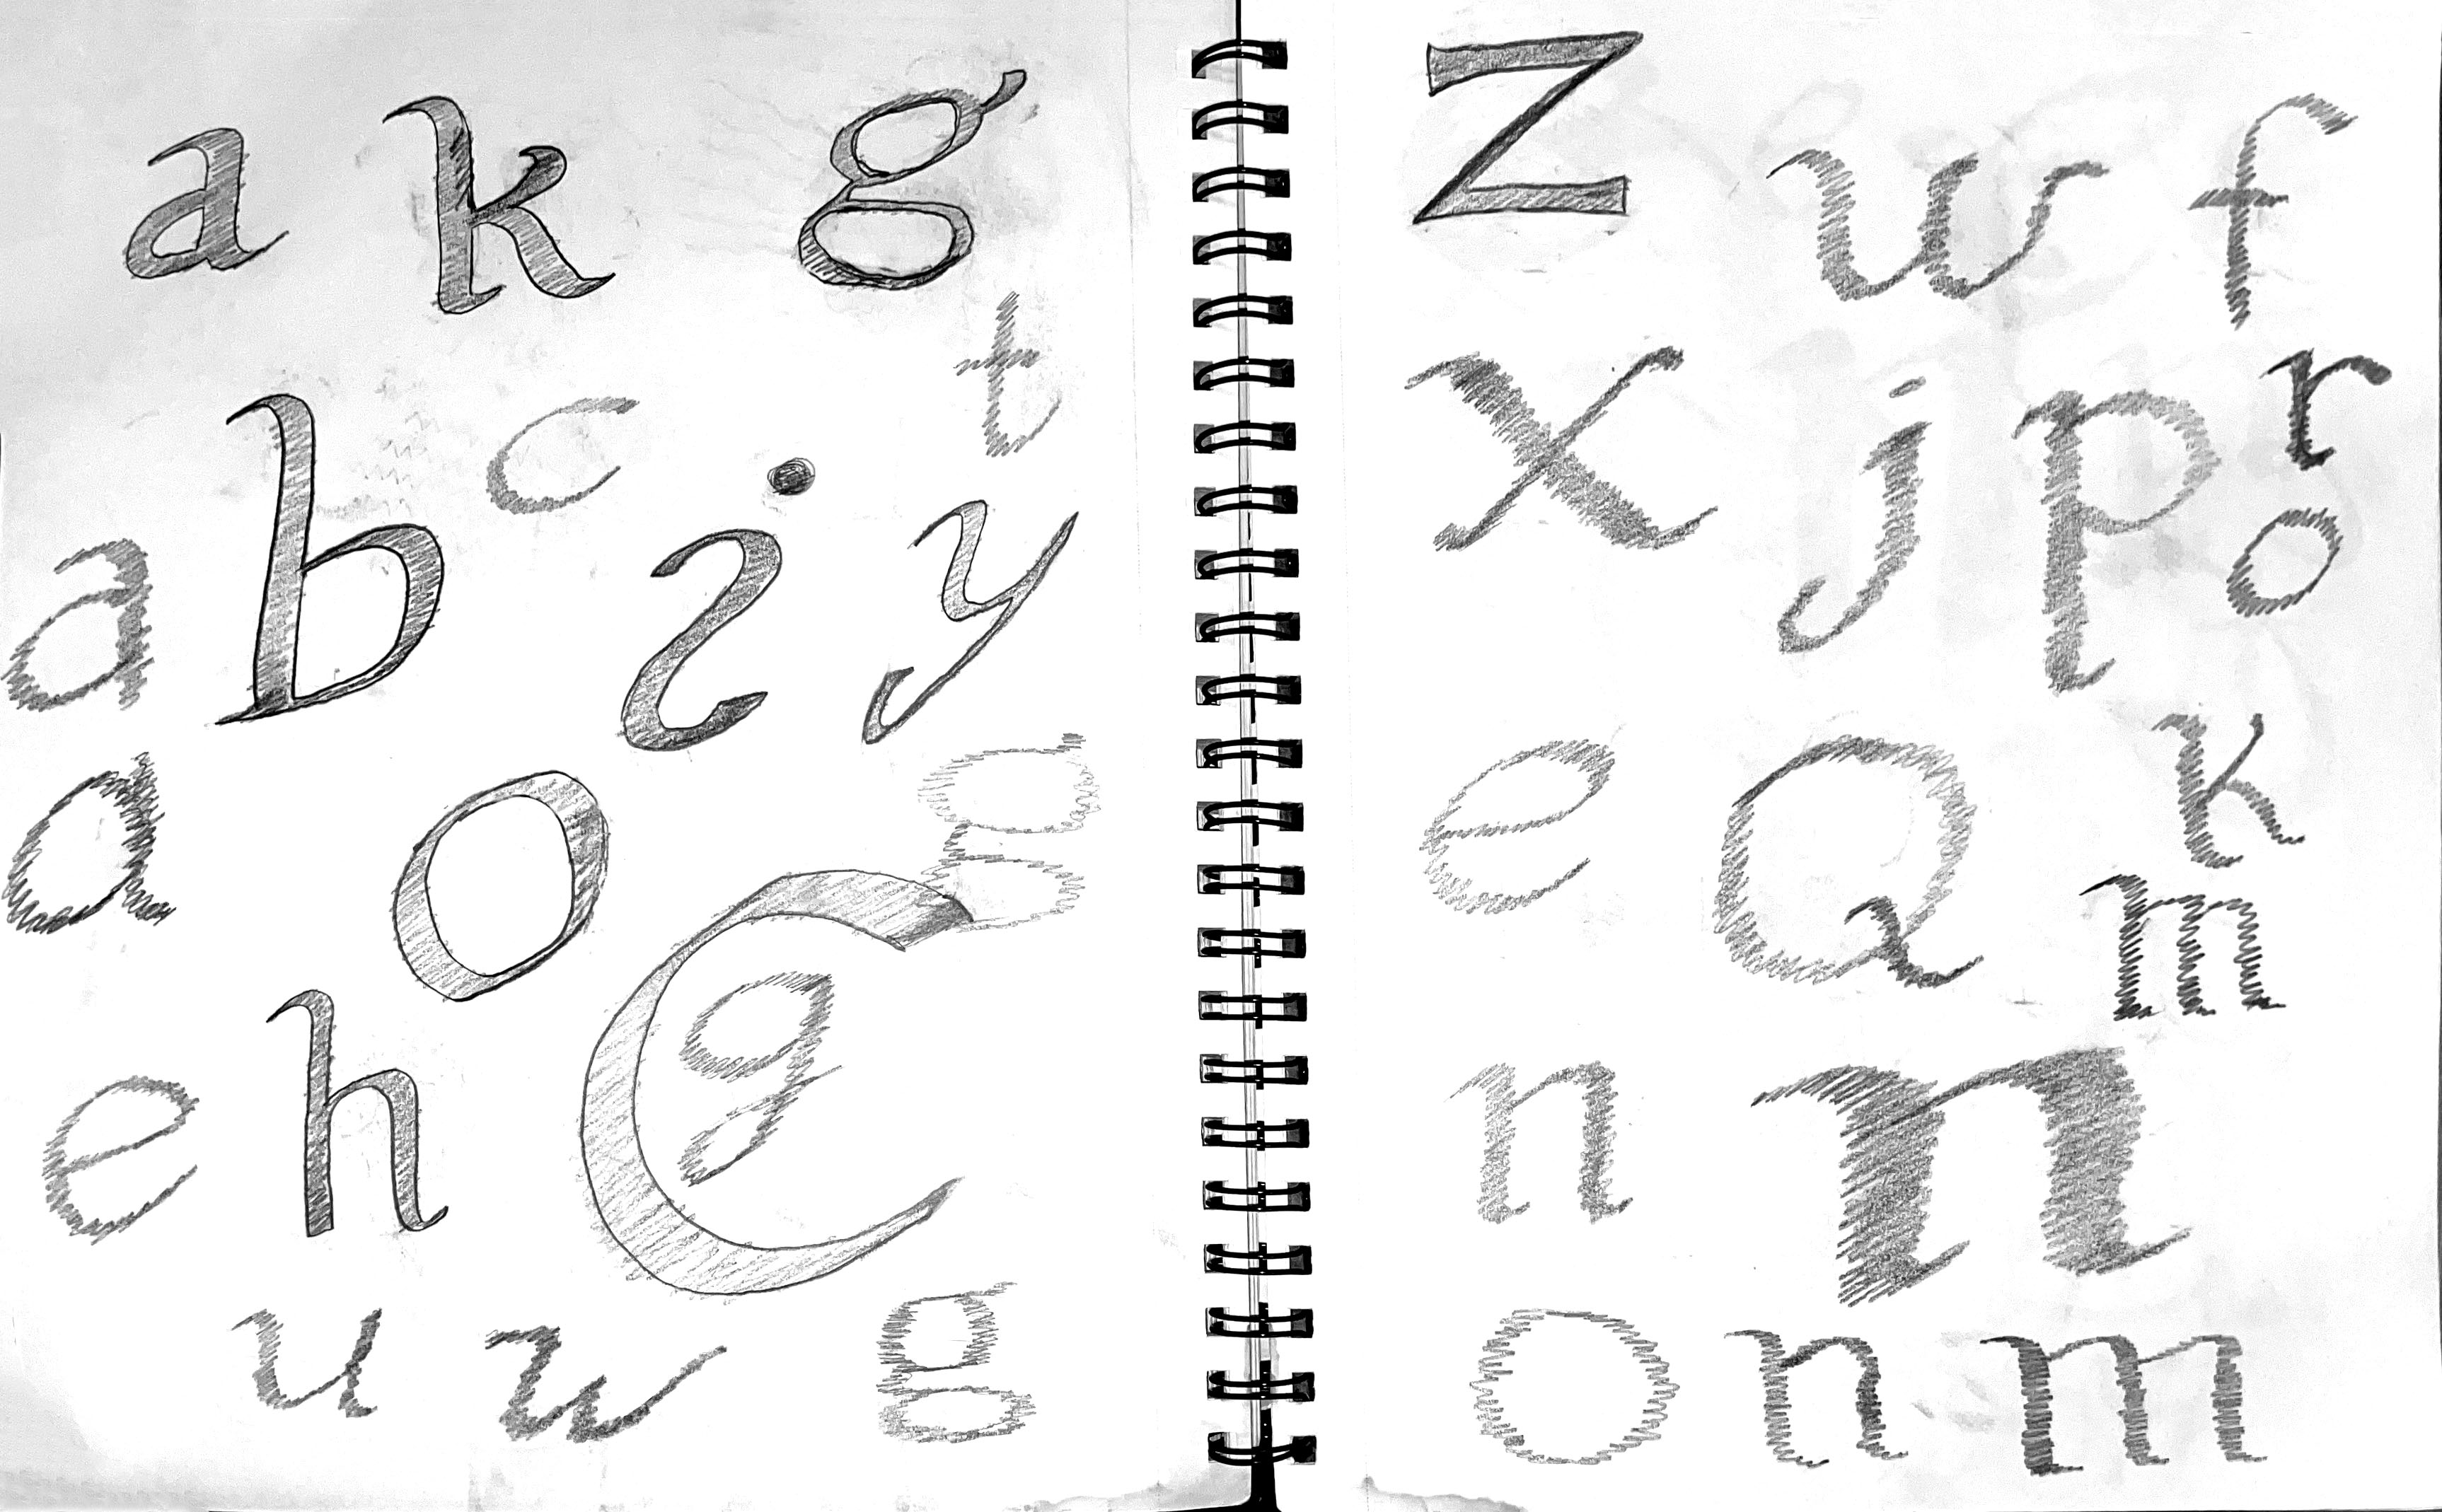 a k g
t
b c
a i y
a o g
C
g
e h
u w g
Z w f
x j p r
o
e Q k
m
n n
o n m